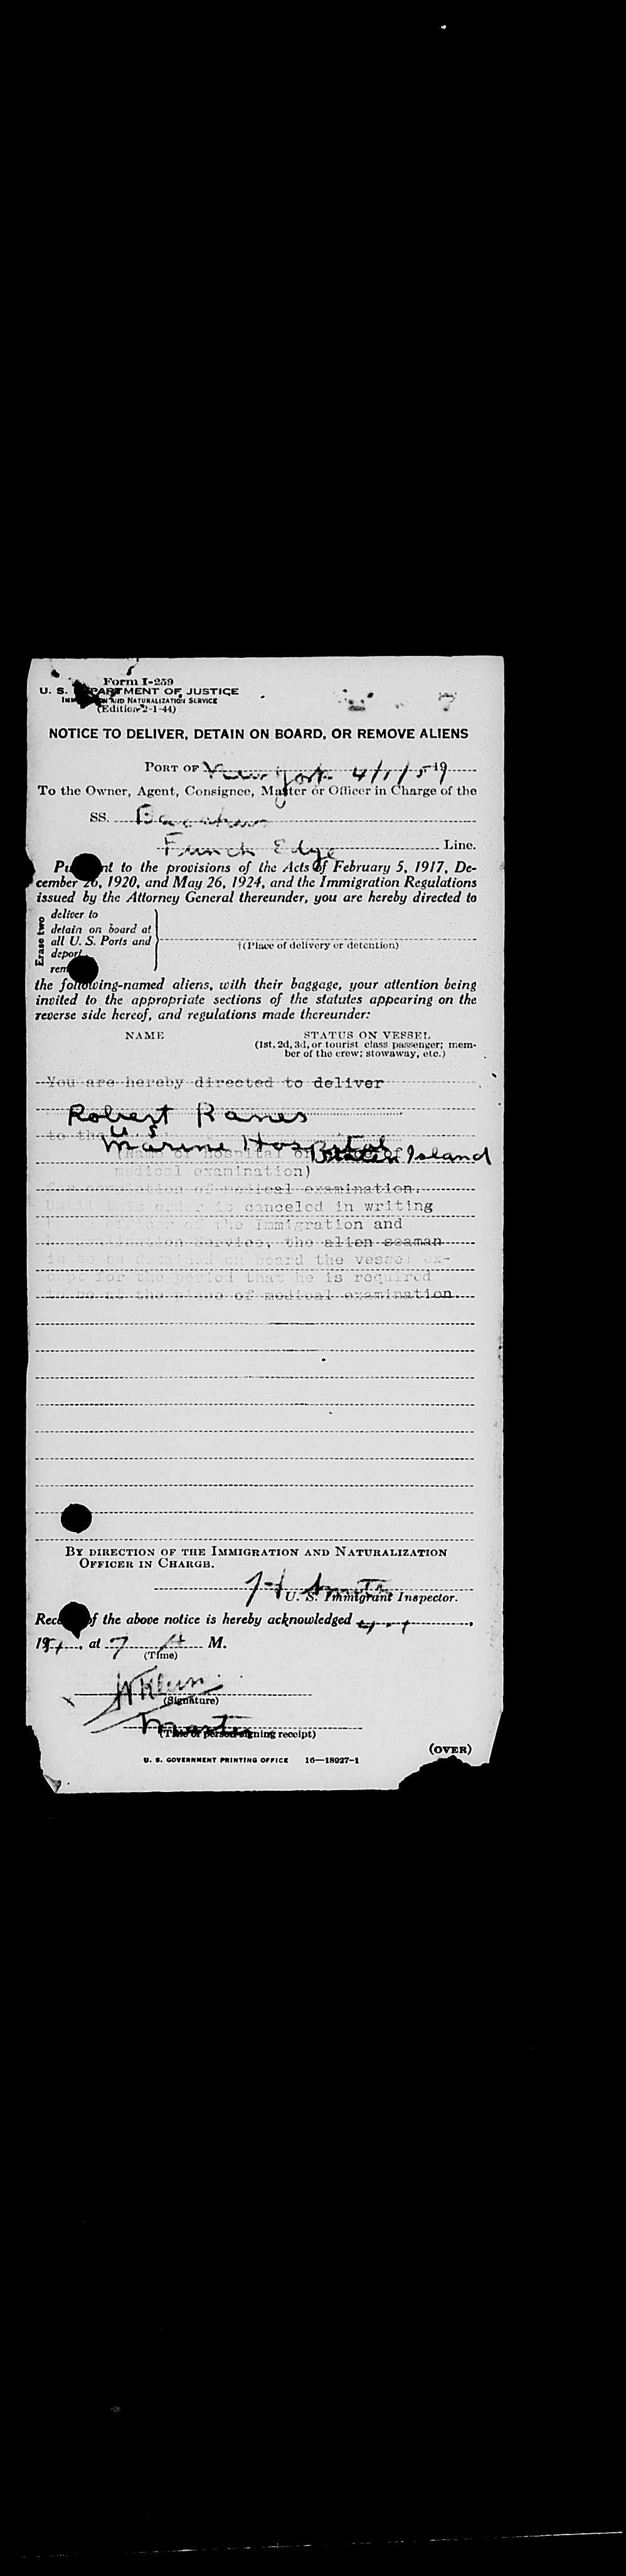 Form I-259
U. S. DEPARTMENT OF JUSTICE
IMMIGRATION AND NATURALIZATION SERVICE
(Edition 2-1-44)
NOTICE TO DELIVER, DETAIN ON BOARD, OR REMOVE ALIENS
PORT OF New York 4/1/51 19
To the Owner, Agent, Consignee, Master or Officer in Charge of the
SS.
Funch Edye Line.
Pursuant to the provisions of the Acts of February 5, 1917, De-
cember 26, 1920, and May 26, 1924, and the Immigration Regulations
issued by the Attorney General thereunder, you are hereby directed to
Erase two
deliver to
detain on board at
all U. S. Ports and
deport
remove
†(Place of delivery or detention)
the following-named aliens, with their baggage, your attention being
invited to the appropriate sections of the statutes appearing on the
reverse side hereof, and regulations made thereunder:
NAME STATUS ON VESSEL
(1st, 2d, 3d, or tourist class passenger; mem-
ber of the crew; stowaway, etc.)
You are hereby directed to deliver
Robert Ranes
to the U.S
Marine Hospital Staten Island
(Name of hospital or place of
medical examination)
for completion of medical examination.
Until this order is canceled in writing
by an officer of the Immigration and
Naturalization Service, the alien seaman
is to be detained on board the vessel ex-
cept for the period that he is required
to be at the place of medical examination.
BY DIRECTION OF THE IMMIGRATION AND NATURALIZATION
OFFICER IN CHARGE.
U. S. Immigrant Inspector.
Receipt of the above notice is hereby acknowledged 4-1,
1951, at 7 A M.
(Time)
(Signature)
Master
(Title of person signing receipt)
(OVER)
U. S. GOVERNMENT PRINTING OFFICE 16—18927-1